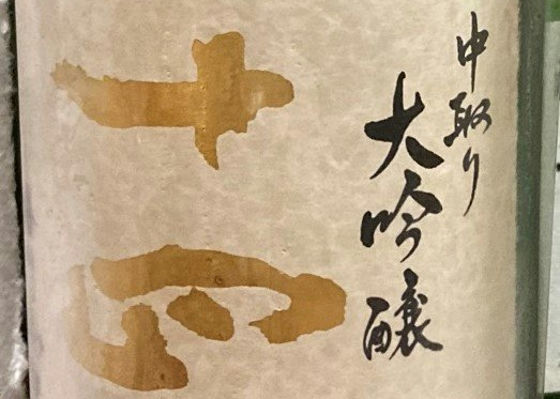 中取り
大吟醸
十四